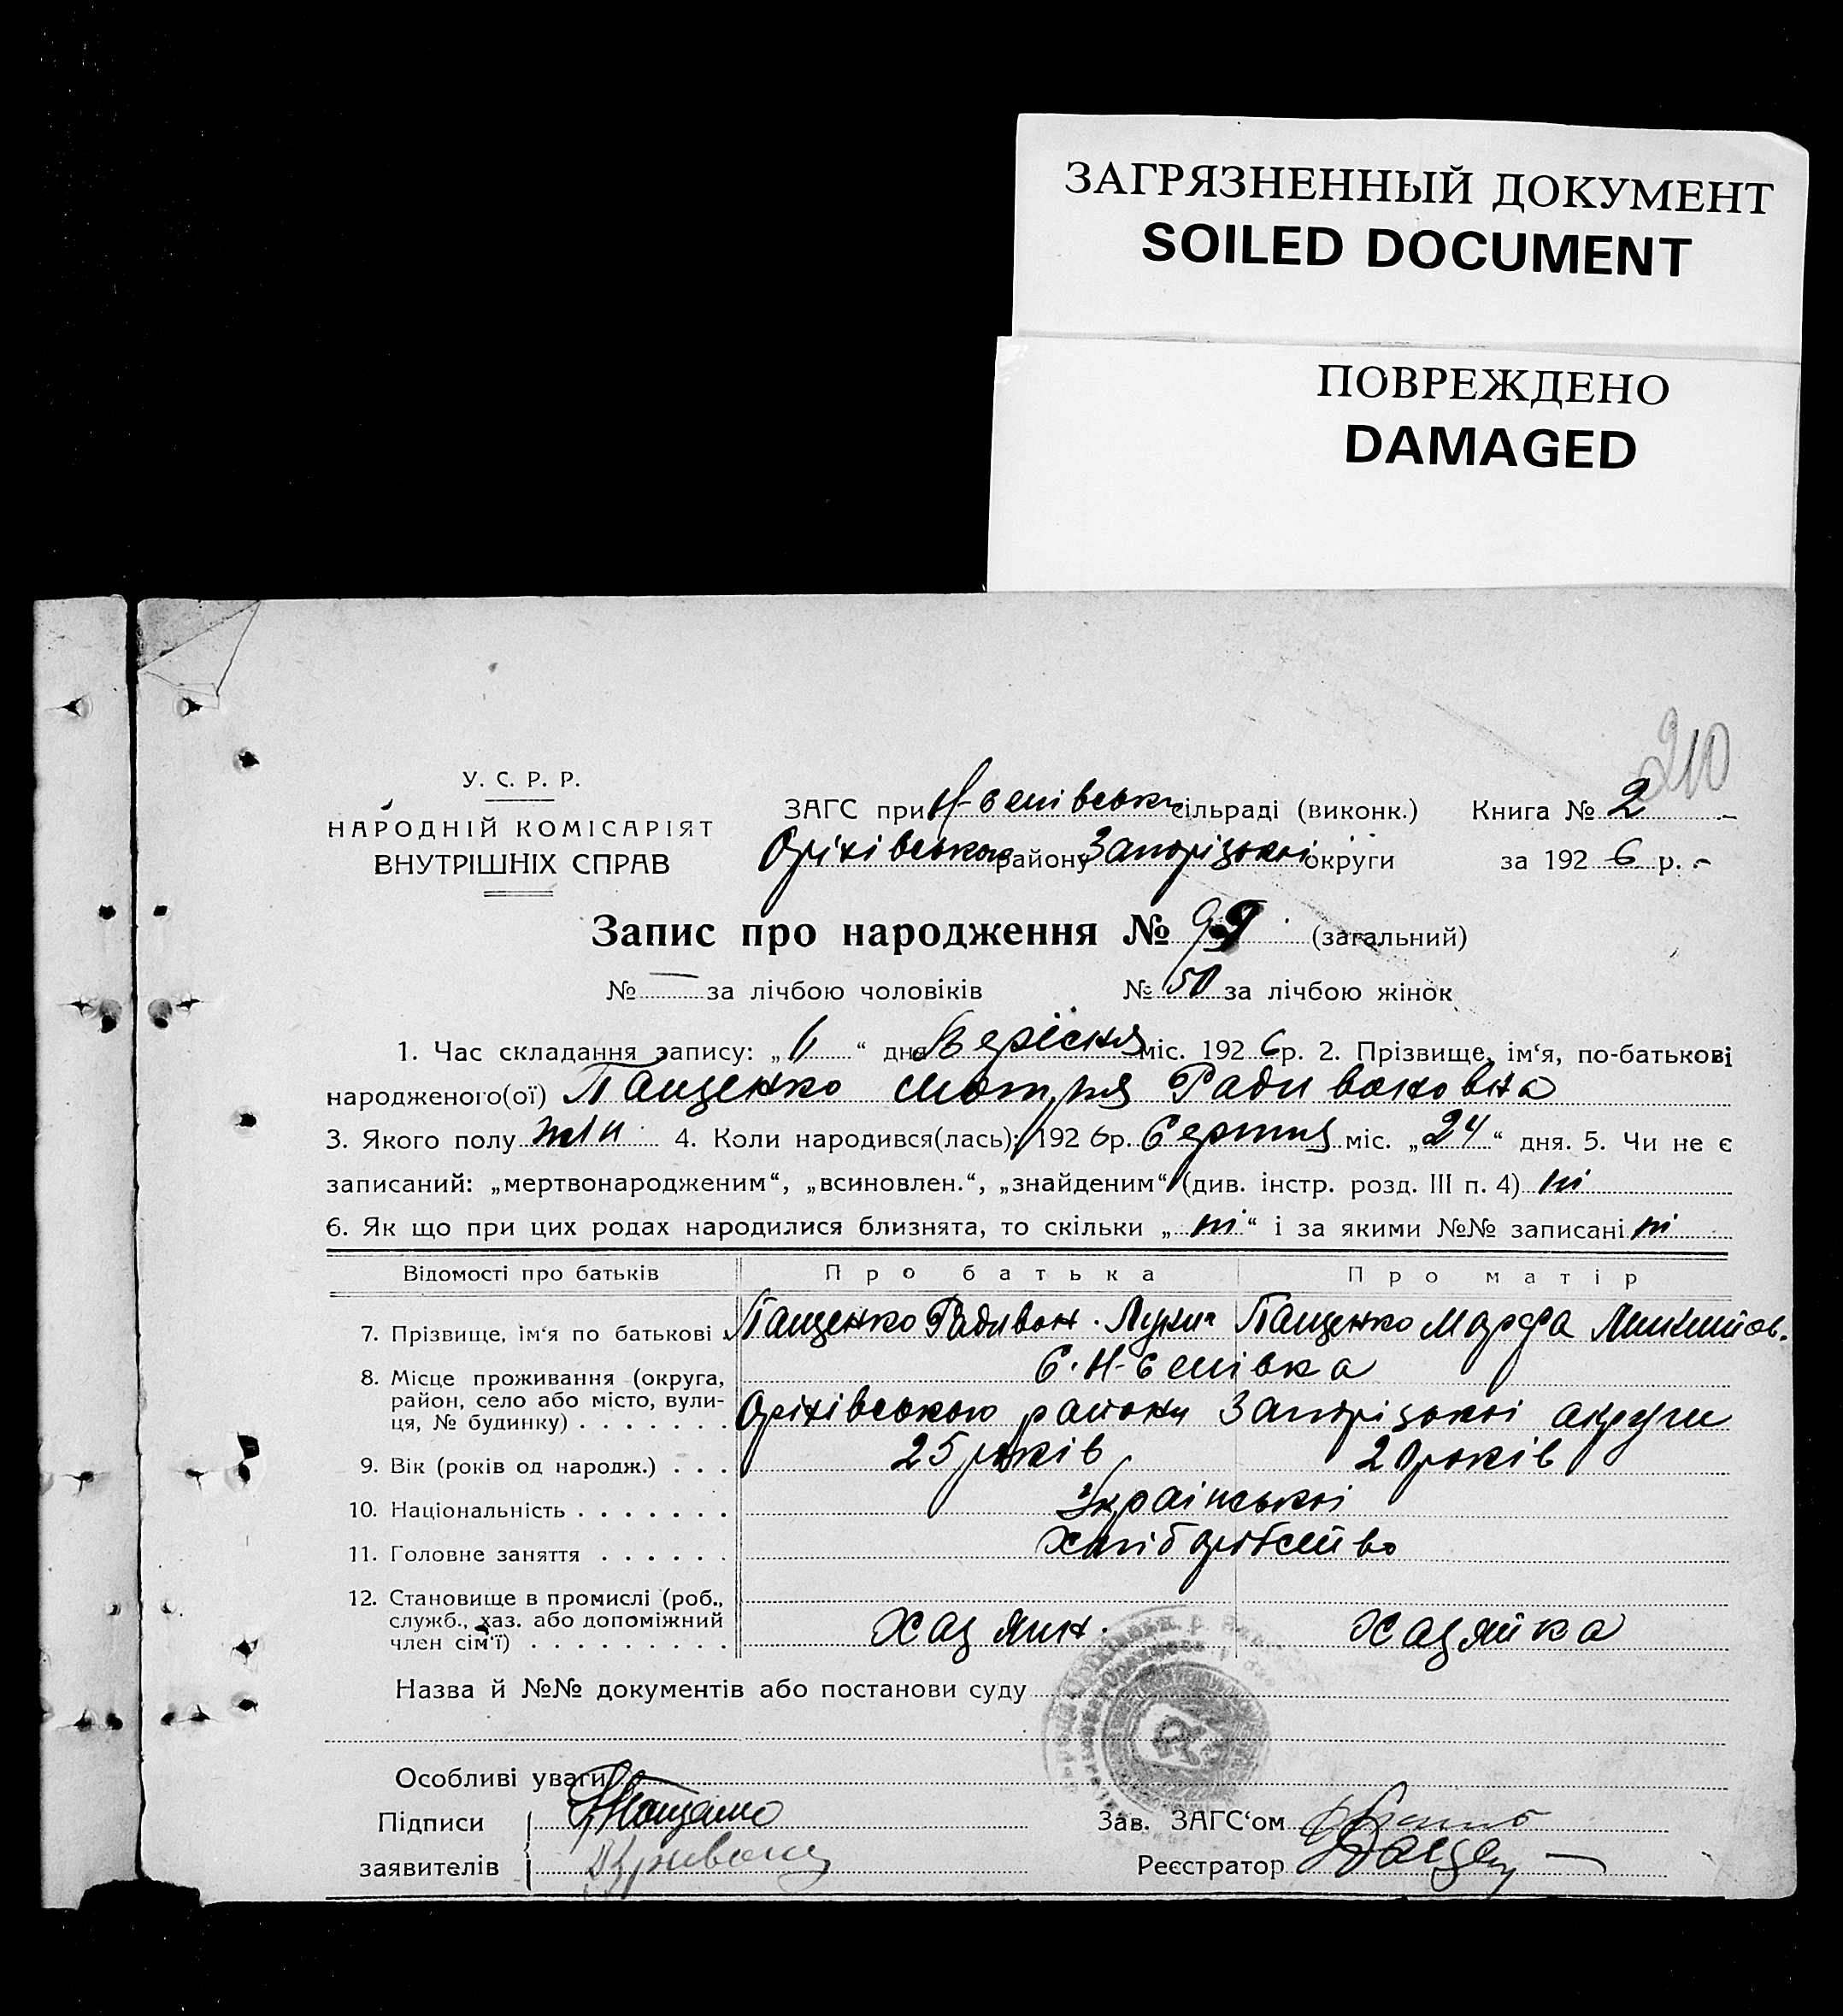 ЗАГРЯЗНЕННЫЙ ДОКУМЕНТ
SOILED DOCUMENT
ПОВРЕЖДЕНО
DAMAGED
210
У. С. Р. Р.
НАРОДНІЙ КОМІСАРІЯТ
ВНУТРІШНІХ СПРАВ
ЗАГС при сільраді (виконк.) Книга № 2
Оріхівського району Запорізької округи за 1926 р.
Запис про народження № 99 (загальний)
№ — за лічбою чоловіків № 50 за лічбою жінок
1. Час складання запису: „ “ дня Вересня міс. 1926 р. 2. Прізвище, ім‘я, по-батькові
народженого(ої) Пащенко Мотря Радивоновна
3. Якого полу жін 4. Коли народився(лась): 1926 р. Серпня міс. „24“ дня. 5. Чи не є
записаний: „мертвонародженим“, „всиновлен.“, „знайденим“ (див. інстр. розд. III п. 4) ні
6. Як що при цих родах народилися близнята, то скільки „ні“ і за якими №№ записані ні
Відомості про батьків Про батька Про матір
7. Прізвище, ім‘я по батькові Пащенко Радивон Пащенко Марфа
8. Місце проживання (округа,
район, село або місто, вули-
ця, № будинку) Оріхівського району Запорізької округи
9. Вік (років од народж.) 25 років 20 років
10. Національність Української
11. Головне заняття Хліборобство
12. Становище в промислі (роб.,
служб., хаз. або допоміжний
член сім‘ї) Хазяин. Хазяйка
Назва й №№ документів або постанови суду
Особливі уваги
Підписи Пащенко Зав. ЗАГС‘ом
заявителів Реєстратор